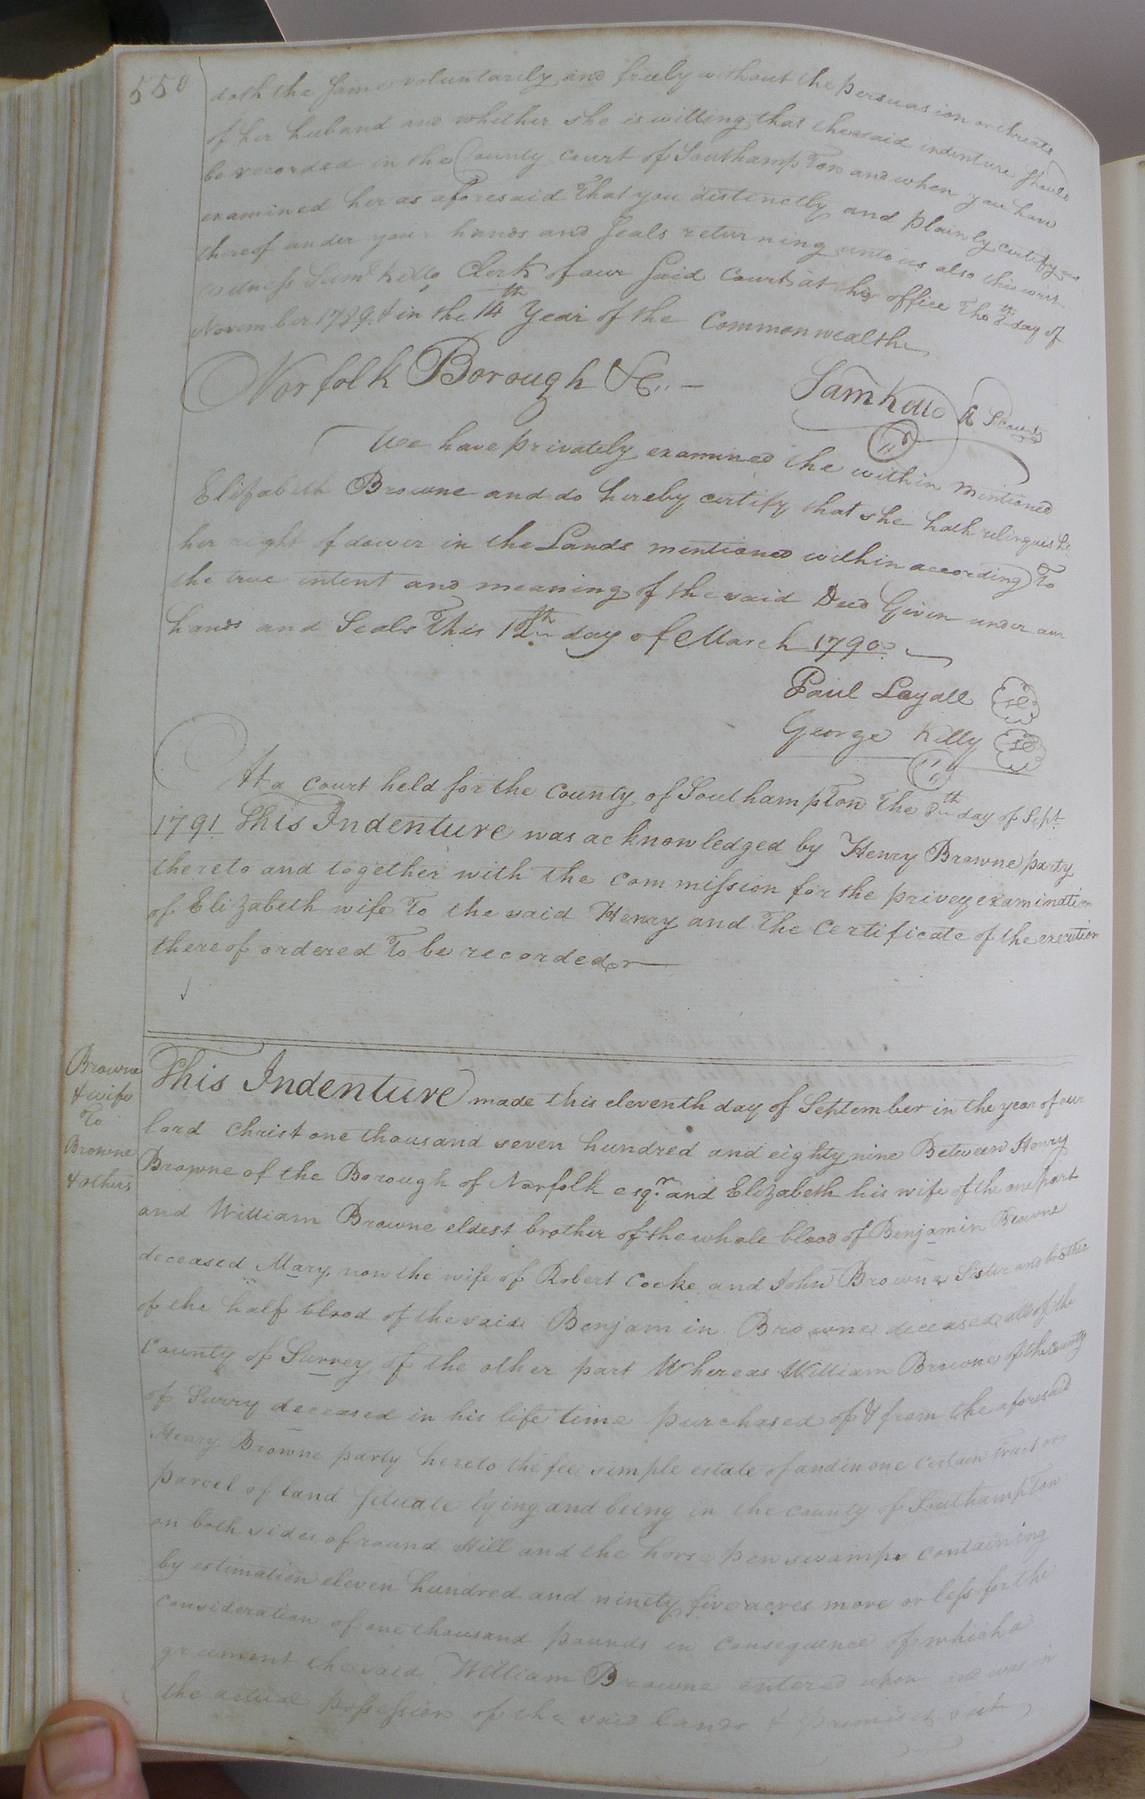 550
doth the same voluntarily and freely without the persuasion or threats
of her husband and whether she is willing that the said indenture should
be recorded in the County court of Southampton and when you have
examined her as aforesaid that you distinctly and plainly certify us
thereof under your hands and seals returning unto us also this writ
witness Saml Kello Clerk of our said Court at his office the 8th day of
November 1789 & in the 14th Year of the Commonwealth
Norfolk Borough &c. Sam Kello
We have privately examined the within mentioned
Elizabeth Browne and do hereby certify that she hath relinquishd
her right of dower in the Lands mentioned within according To
the true intent and meaning of the said Deed Given under our
hands and Seals This 12th day of March 1790
Paul Loyall
George Kelly
At a court held for the County of Southampton the 8th day of Sept.
1791 This Indenture was acknowledged by Henry Browne party
thereto and together with the commission for the privey examination
of Elizabeth wife To the said Henry and The Certificate of the execution
thereof ordered To be recorded
Browne
& wife
To
Browne
& others
This Indenture made this eleventh day of September in the year of our
lord Christ one thousand seven hundred and eighty nine Between Henry
Browne of the Borough of Norfolk esqr. and Elizabeth his wife of the one part
and William Browne eldest brother of the whole blood of Benjamin Browne
deceased Mary now the wife of Robert Cocke and John Browne Sister and brother
of the half blood of the said Benjamin Browne deceased all of the
County of Surrey of the other part Whereas William Browne of the County
of Surry deceased in his life time purchased of & from the aforesaid
Henry Browne party hereto the fee simple estate of and in one certain tract or
parcel of land situate lying and being in the County of Southampton
on both sides of round Hill and the horse pen swamps containing
by estimation eleven hundred and ninety five acres more or less for the
consideration of one thousand pounds in consequence of which a
greement the said William Browne entered upon and was in
the actual possession of the said lands & premises